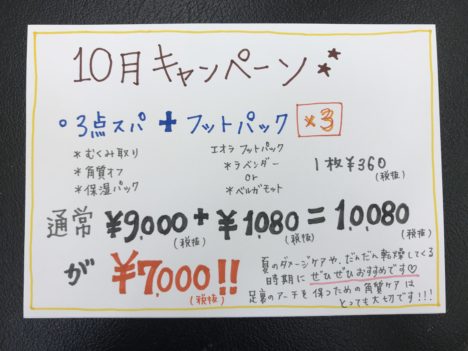 10月キャンペーン
○3点スパ + フットパック ×3
*むくみ取り
*角質オフ
*保湿パック
エオラ フットパック
*ラベンダー
or
*ベルガモット
1枚¥360
(税抜)
通常 ¥9,000 + ¥1,080 = 10,080
(税抜) (税抜) (税抜)
が ¥7,000!!
(税抜)
夏のダメージケアや、だんだん乾燥してくる
時期に ぜひぜひおすすめです♡
足裏のアーチを保つための角質ケアは
とっても大切です!!!